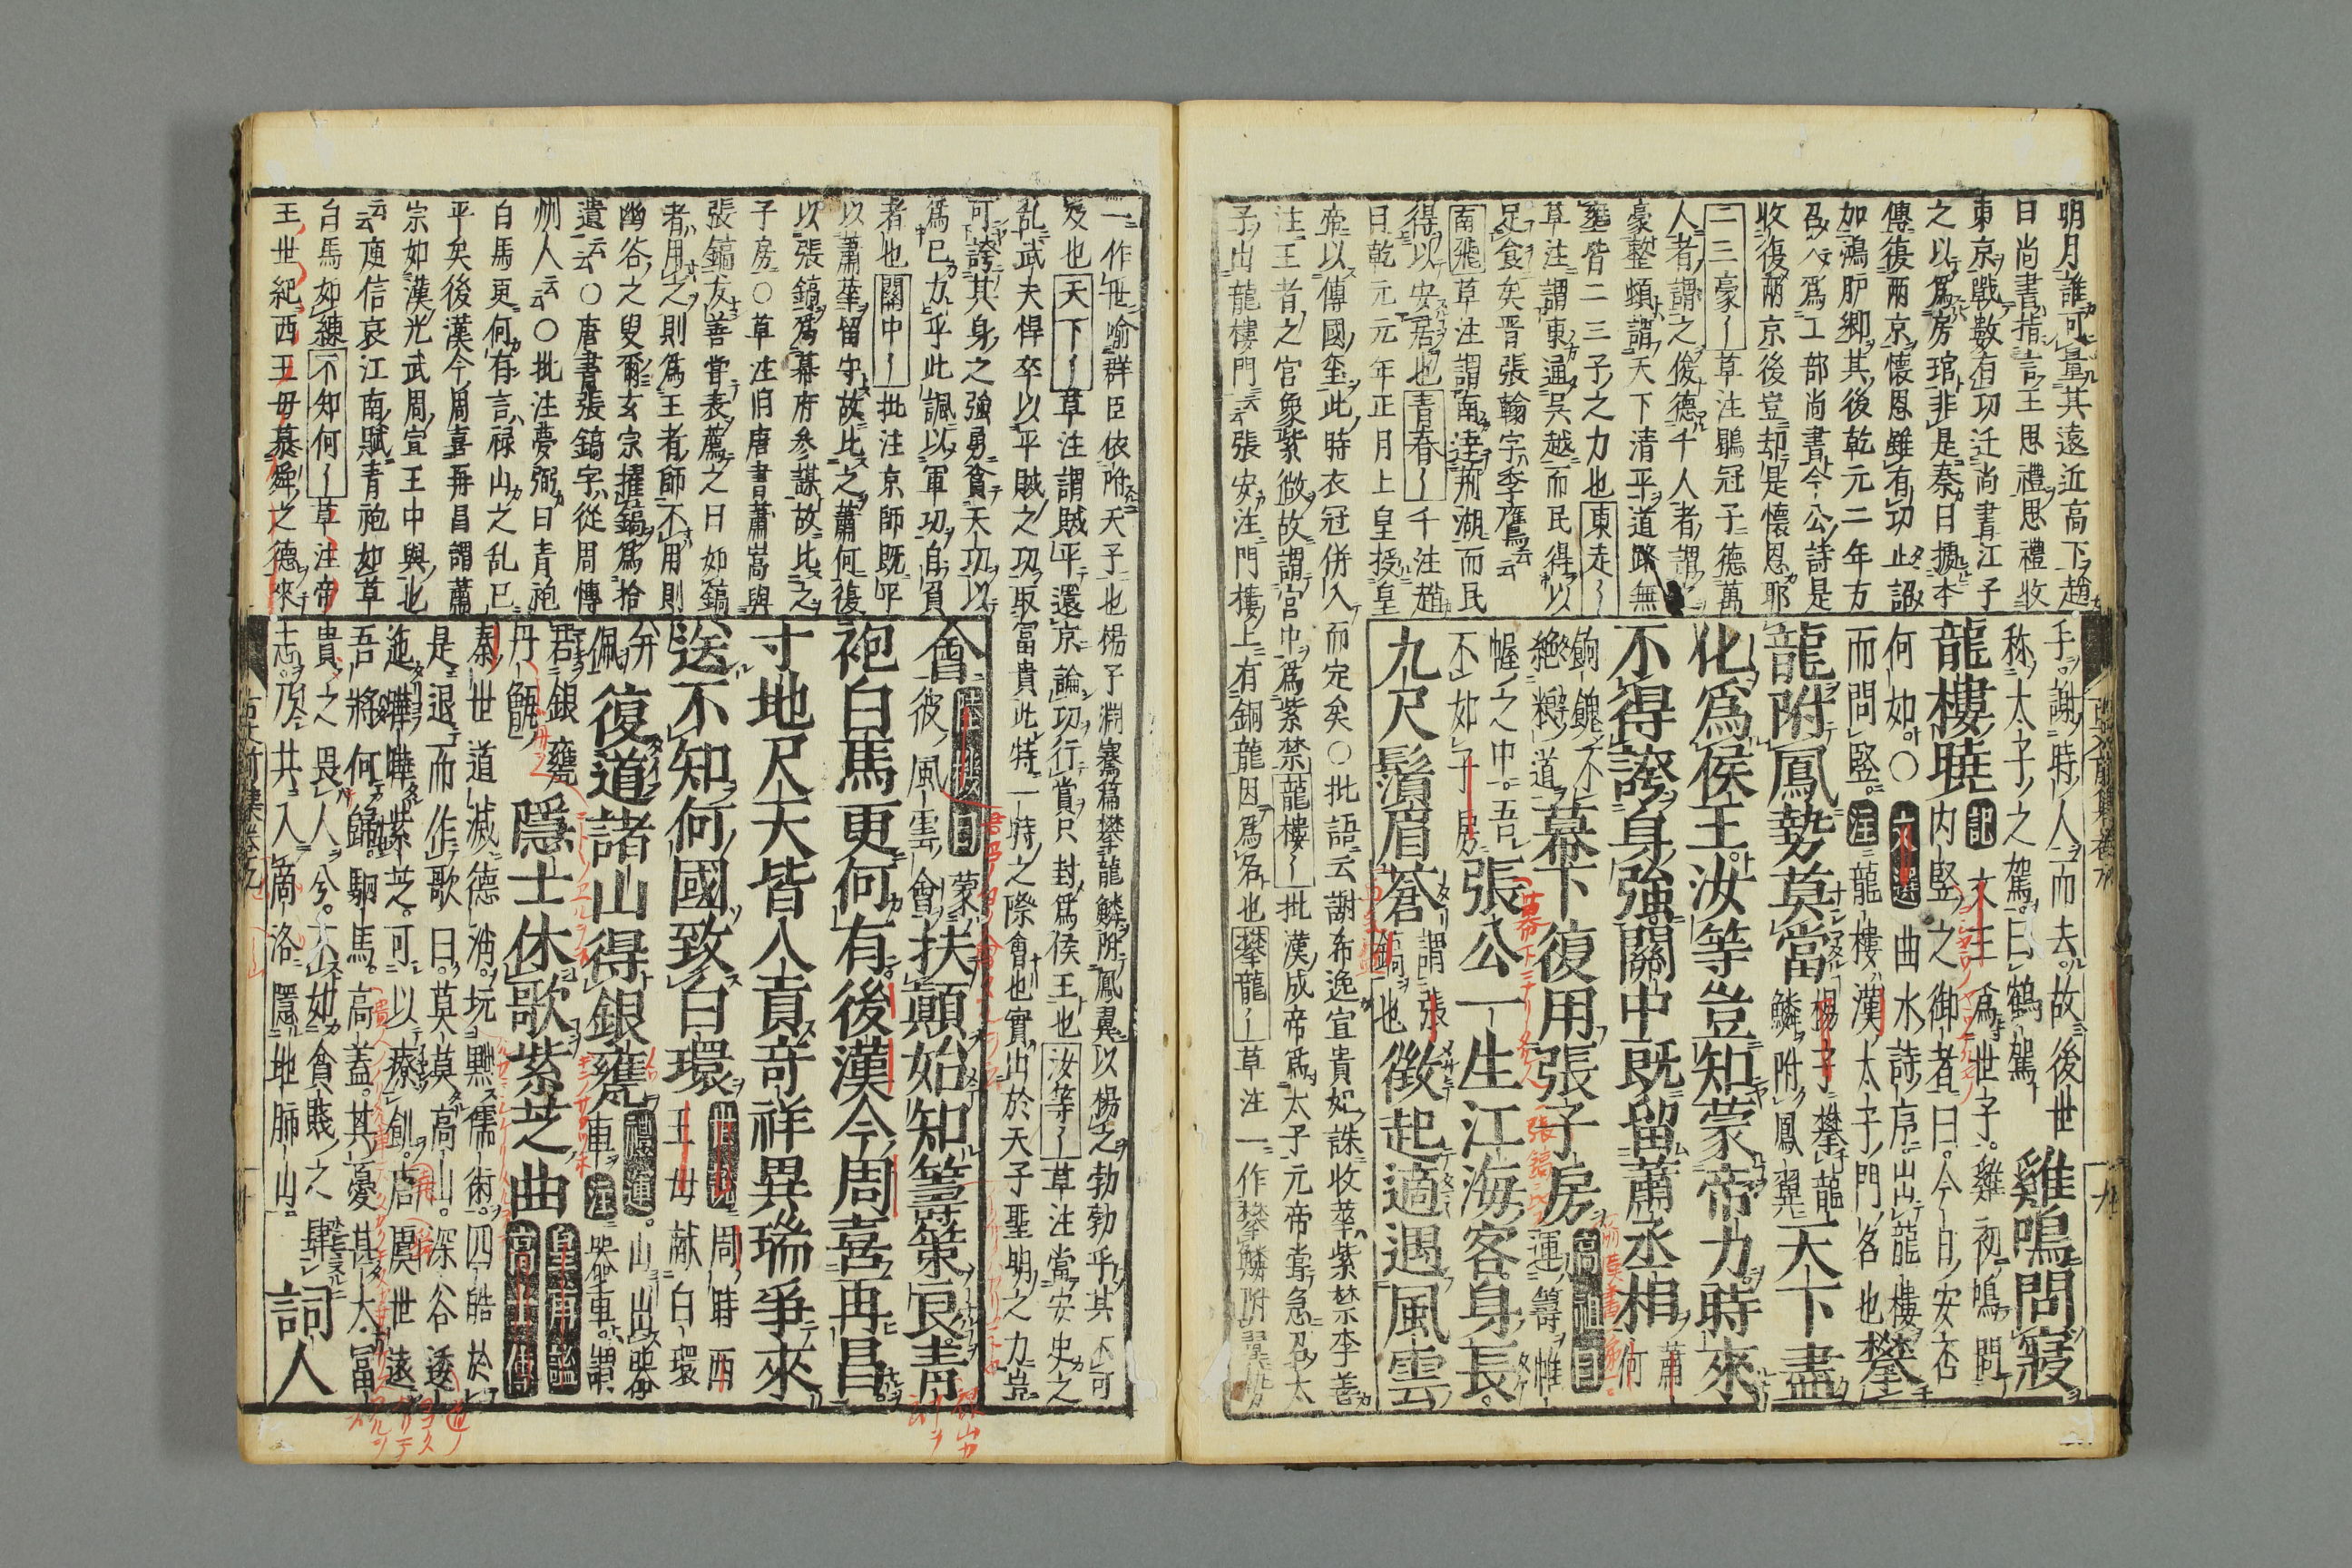 明月誰可量其遠近高下趙
日尚書指言王思禮思禮收
東京戰數有功迁尚書江子
之以爲房琯非是秦日據本
傳復兩京懷恩雖有功止詔
如鴻胪卿其後乾元二年方
召入爲工部尚書今公詩是
收復兩京後豈却是懷恩耶
二三豪〡草注鶡冠子德萬
人者謂之俊德千人者謂之
豪整頓謂天下清平道路無
壅皆二三子之力也東走〡
草注謂東通吳越而民得以
足食矣晋張翰字季鷹云云
南飛草注謂南達荊湖而民
得以安居也青春〡千注趙
日乾元元年正月上皇授皇
帝以傳國璽此時衣冠併入而定矣〇批語云謝布逸宜貴妃誅收葬紫禁李善
注王者之官象紫微故謂宮中爲紫禁龍樓〡批漢成帝爲太子元帝嘗急召太
子出龍樓門云張安注門樓上有銅龍因爲名也攀龍〡草注一作攀鱗附翼勢
手謝時人而去故後世
称太子之駕曰鶴駕
雞鳴問寢
龍樓曉
記文王爲世子雞初鳴問
内竪之御者曰今日安否
何如〇文選曲水詩序出龍樓
而問竪注龍樓漢太子門名也
攀
龍附鳳勢莫當
楊子攀龍
鱗附鳳翼
天下盡
化爲侯王汝等豈知蒙帝力時來
不得誇身強關中既留蕭丞相
蕭何
餉餽不
絶糧道
幕下復用張子房
高祖曰
運籌帷
幄之中吾
不如子房
張公一生江海客身長
九尺鬚眉蒼
謂張
鎬也
徵起適遇風雲
一作世喻群臣依附天子也楊子淵騫篇攀龍鱗附鳳翼以楊之勃勃乎其不可
及也天下〡草注謂賊平還京論功行賞只封爲侯王也汝等〡草注當安史之
乱武夫悍卒以平賊之功取富貴此特一時之際會也實出於天子聖明之力豈
可誇其身之強勇貪天功以
爲己力乎此諷以軍功自負
者也關中〡批注京師既平
以蕭華留守故比之蕭何復
以張鎬爲幕府参謀故比之
子房〇草注旧唐書蕭嵩與
張鎬友善嘗表薦之曰如鎬
者用之則爲王者師不用則
幽谷之叟爾玄宗擢鎬爲拾
遺云云〇唐書張鎬字從周博
州人云云〇批注夢弼曰青袍
白馬更何有言禄山之乱已
平矣後漢今周喜再昌謂肅
宗如漢光武周宣王中興也
云云庾信哀江南賦青袍如草
白馬如練不知何〡草注帝
王世紀西王母慕舜之德來
會
彼風雲會蒙
扶顛始知籌策良青
袍白馬更何有後漢今周喜再昌
寸地尺天皆入貢竒祥異瑞爭來
送不知何國致白環
周時西
王母献白環
并
佩
復道諸山得銀甕
禮運山出器
車注器車謂
若銀甕
丹甑
隱士休歌紫芝曲
皇甫謐
高士傳
秦世道滅德消坑黙儒術四皓於
是退而作歌曰莫莫高山深谷逶
迤曄曄紫芝可以療飢唐虞世遠
吾將何歸駟馬高蓋其憂甚大富
貴之畏人兮不如貧賤之肆
志乃共入商洛隱地肺山
詞人